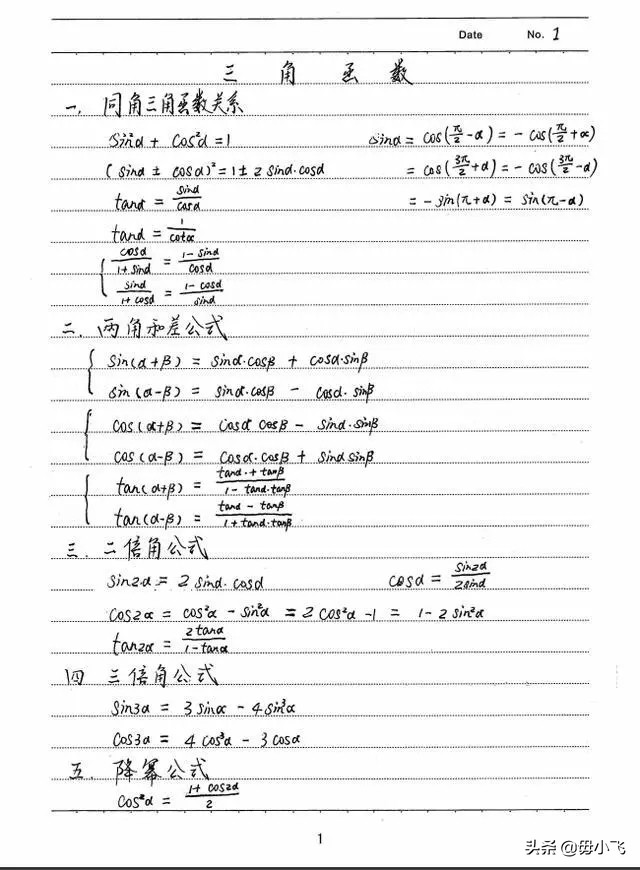 Date No. 1
三角函数
一. 同角三角函数关系
sin²α + cos²α = 1
sinα = cos(π/2 - α) = - cos(π/2 + α)
(sinα ± cosα)² = 1 ± 2 sinα·cosα
= cos(3π/2 + α) = - cos(3π/2 - α)
tanα = sinα/cosα
= - sin(π + α) = sin(π - α)
tanα = 1/cotα
cosα/(1 + sinα) = (1 - sinα)/cosα
sinα/(1 + cosα) = (1 - cosα)/sinα
二. 两角和差公式
sin(α+β) = sinα·cosβ + cosα·sinβ
sin(α-β) = sinα·cosβ - cosα·sinβ
cos(α+β) = cosα cosβ - sinα·sinβ
cos(α-β) = cosα·cosβ + sinα sinβ
tan(α+β) = (tanα + tanβ)/(1 - tanα·tanβ)
tan(α-β) = (tanα - tanβ)/(1 + tanα·tanβ)
三. 二倍角公式
sin2α = 2 sinα·cosα cosα = sin2α/2sinα
cos2α = cos²α - sin²α = 2cos²α - 1 = 1 - 2sin²α
tan2α = 2tanα/(1 - tanα)
四 三倍角公式
sin3α = 3 sinα - 4 sin³α
cos3α = 4 cos³α - 3 cosα
五. 降幂公式
cos²α = (1 + cos2α)/2
1
头条 @毋小飞